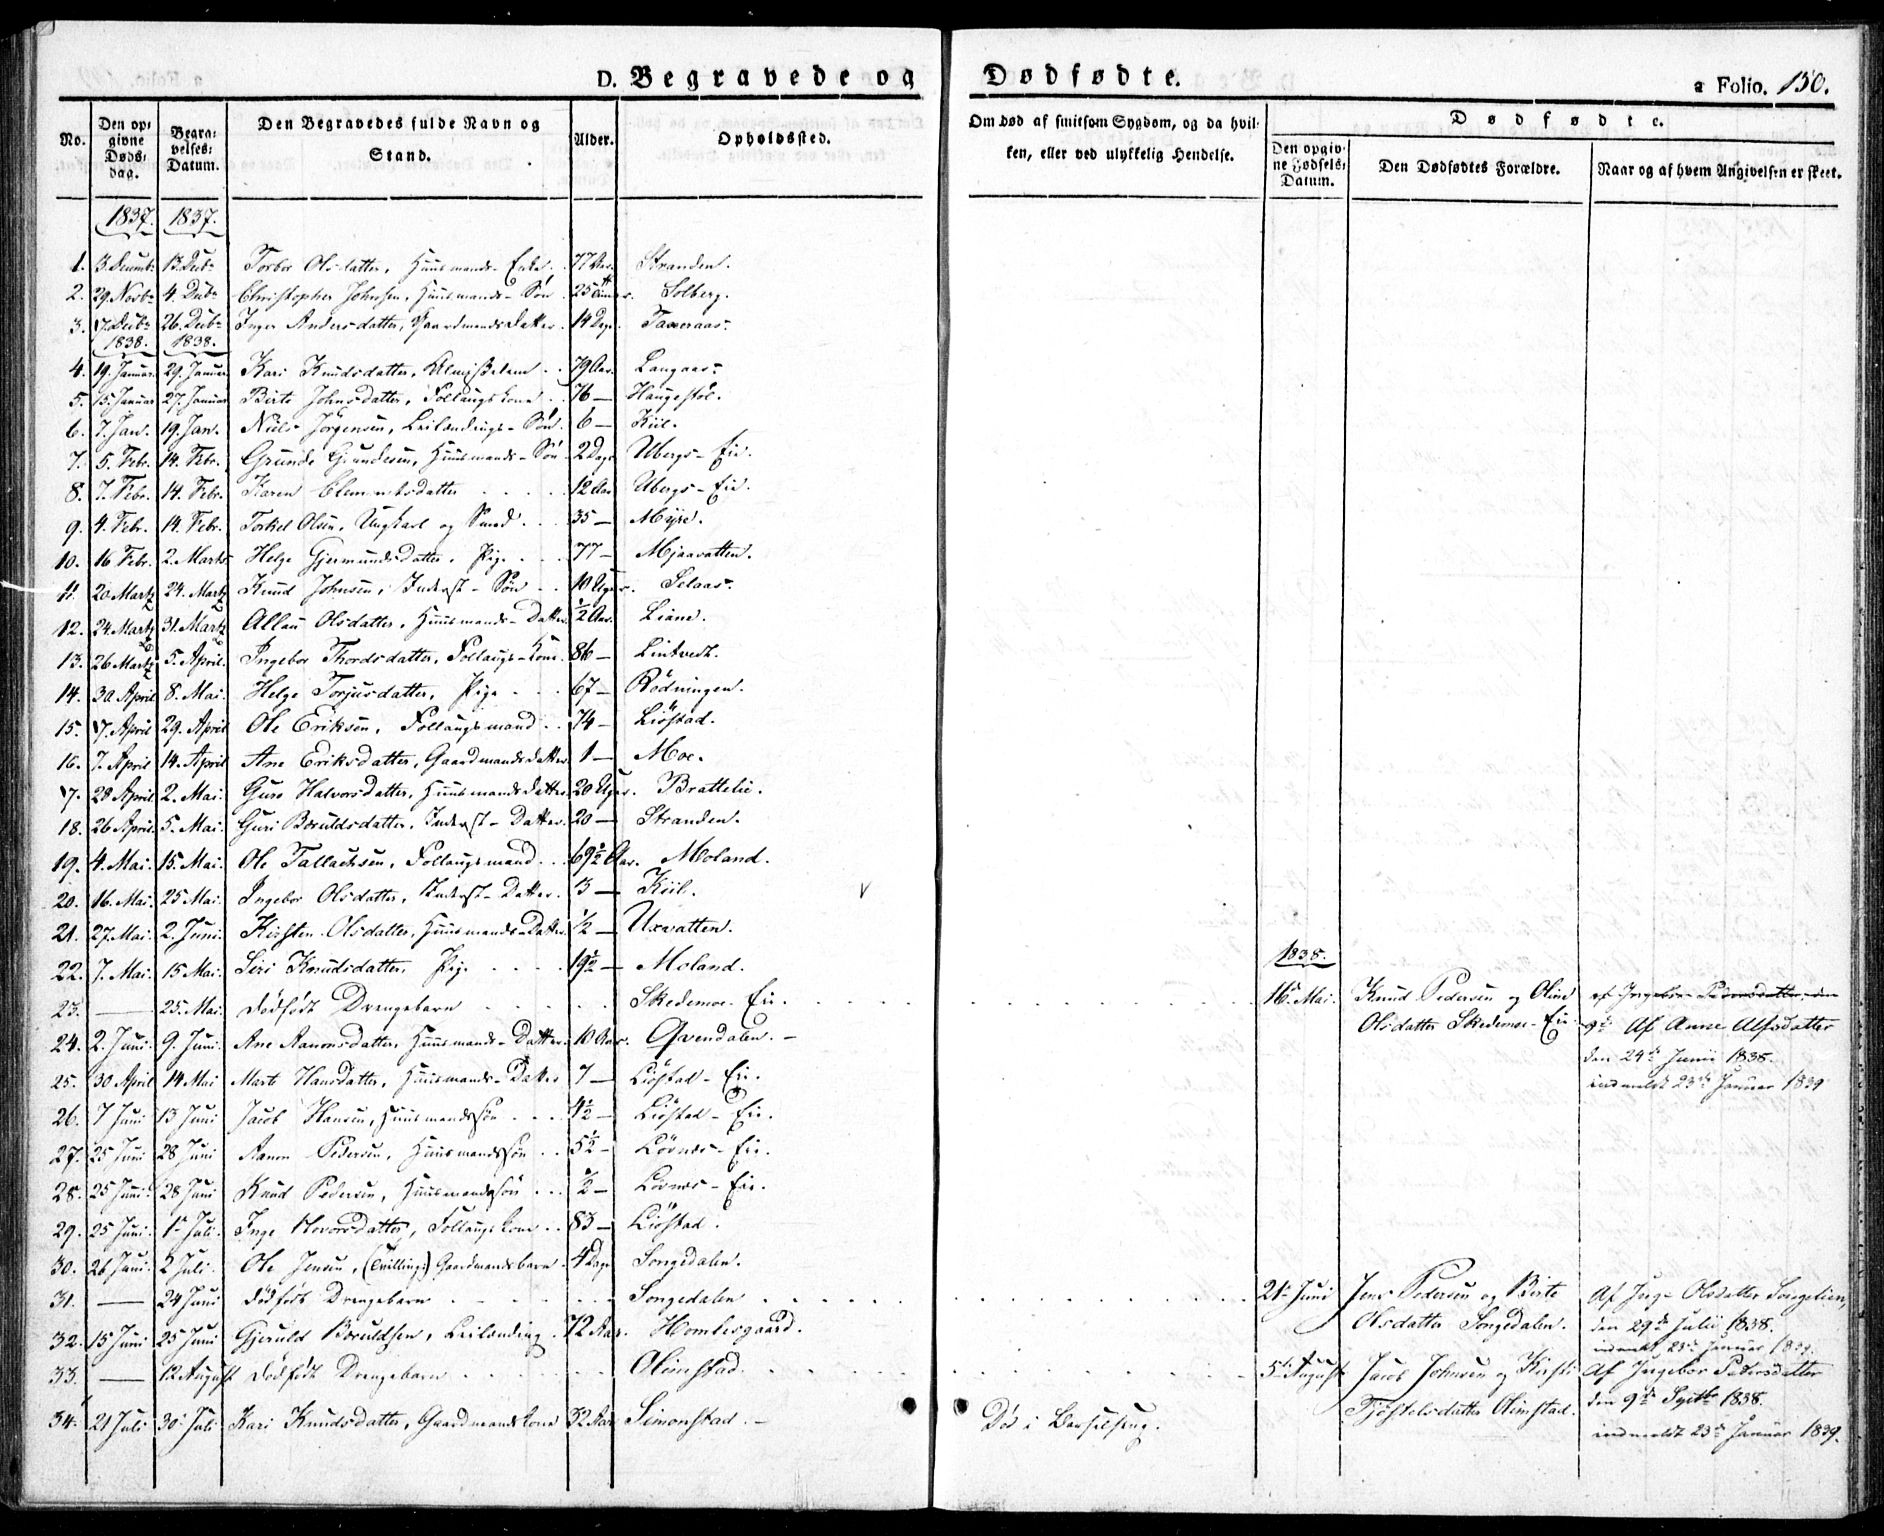 D. Begravede og Dødfødte.
a Folio. 150.
No. Den opgivne Dødsdag. Begravelses: Datum. Den Begravedes fulde Navn og Stand. Alder. Opholdssted. Om død af smitsom Sygdom, og da hvilken, eller ved ulykkelig Hendelse. Dødfødte. Den opgivne Fødsels: Datum. Den Dødfødtes Forældre. Naar og af hvem Angivelsen er skeet.
1837. 1837.
1. 3. Decemb. 13. Decbr Torbor Olsdatter, Huusmands-Enke. 77 Aar. Stranden.
2. 29. Novbr 4. Decbr Christopher Johnsen, Huusmands-Søn. 25 Solberg.
3. 7. Decbr 26. Decbr Inger Andersdatter, Gaardmandsdatter. 14 Dage.
1838. 1838.
4. 19. Januar. 29. Januar Kari Knudsdatter, Almisselem . . 79 Aar. Langaas.
5. 15. Januar 27. Januar Birte Johnsdatter, Follaugskone . . 76 — Haugestöl.
6. 7. Jan. 19. Jan. Niels Jörgensen, Leilændings-Søn. 6 — Kiil.
7. 5. Febr. 14. Febr. Grunde Grundesen, Huusmands-Søn 2 Dage Ubergs-Eie.
8. 7. Febr. 14. Febr. Karen Clemmetsdatter . . . . 12 Aar Ubergs-Eie.
9. 4. Febr. 14. Febr. Torkel Olsen, Ungkarl og Smed . . 35 — Myre.
10. 16 Febr. 2. Marts Helge Gjermundsdatter, Pige . . . 77 — Mjaavatten.
11. 20 Martz 24. Martz Knud Johnsen, Inderst-Søn . . 10 Uger. Selaas.
12. 24. Martz 31. Martz Olsdatter, Huusmands-Datter. ½ Aar. Liane.
13. 26 Martz 5. April. Ingebor Thordsdatter, Follaugs-Kone. 86 — Lintvedt.
14. 30. April 8. Mai. Helge Torjusdatter, Pige . . . 67 — Rödningen.
15. 7. April 29. April Ole Eriksen, Follaugsmand . . 74 — Liöstad.
16. 7. April 14. April Ane Eriksdatter, Gaardmandsdatter 1 — Moe.
17. 28 April. 2. Mai. Guro Halvorsdatter, Huusmandsdatter 20 Uger. Brattelie.
18. 26 April. 5. Mai. Guri Boruldsdatter, Inderst-Datter. 20 — Stranden.
19. 4. Mai. 15. Mai. Ole Tallachsen, Follaugsmand . . 69½ Aar. Moland.
20. 16. Mai. 25 Mai. Ingebor Olsdatter, Inderst-Datter. 3 — Kiil.
21. 27. Mai. 2. Juni. Kirsten Olsdatter, Huusmands-Datter. ½ — Uxvatten.
22. 7. Mai. 15 Mai. Siri Knudsdatter, Pige . . . . 19½ — Moland.
1838.
23. — 25. Mai. Dödfödt Drengebarn . . . . Skedemoe-Eie. 16. Mai. Knud Pedersen og Oline af Ingebor Pedersdatter
Olsdatter Skedemoe-Eie. Af Anne Alfsdatter
24. 2. Juni. 9. Juni. Ane Aanonsdatter, Huusmands-Datter. 10 Aar. Qvendalen. den 24de Junii 1838.
25. 30 April 14 Mai Marte Hansdatter, Huusmands-Datter 7 — Liöstad-Eie. indmeldt 23de Januar 1839
26. 7 Juni 13 Juni Jacob Hansen, Huusmandssøn . . . 4½ — Liöstad-Eie.
27. 25 Juni 28 Juni Aanon Pedersen, Huusmandssøn . . 5½ — Lövnes-Eie.
28. 25 Juni 28 Juni Knud Pedersen, Huusmandssøn . . ½ — Lövnes-Eie.
29. 25 Juni. 1. Juli. Inge Hovorsdatter, Follaugskone . . 83 — Liöstad.
30. 26 Juni. 2 Juli. Ole Jensen, (Tvilling) Gaardmandsbarn. 4 Dage Songedalen.
31. — 24 Juni Dödfödt Drengebarn . . . . Songedalen . . . 21. Juni Jens Pedersen og Birte Af Inge Olsdatter Songelien,
32. 15 Juni 25 Juni Gjeruld Boruldsen, Leilænding. 72 Aar. Homlesgaard. Olsdatter Songedalen. den 29de Julii 1838.
indmeldt 23de Januar 1839.
33. — 12 August Dödfödt Drengebarn . . . . Olimstad. 5. August Jacob Johnsen og Kirsti Af Ingebor Pedersdatter
Tjöstelsdatter Olimstad. den 9de Septbr 1838.
34. 21 Juli 30. Juli Kari Knudsdatter, Gaardmandskone 32 Aar Simonstad. — Död i Barselseng. indmeldt 23de Januar 1839.